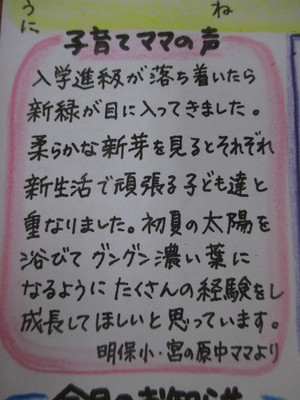 うに
ね
子育てママの声
入学進級が落ち着いたら
新緑が目に入ってきました。
柔らかな新芽を見るとそれぞれ
新生活で頑張る子ども達と
重なりました。初夏の太陽を
浴びて グングン濃い葉に
なるように たくさんの経験をし
成長してほしいと思っています。
明保小・宮の原中ママより
今月のお知らせ